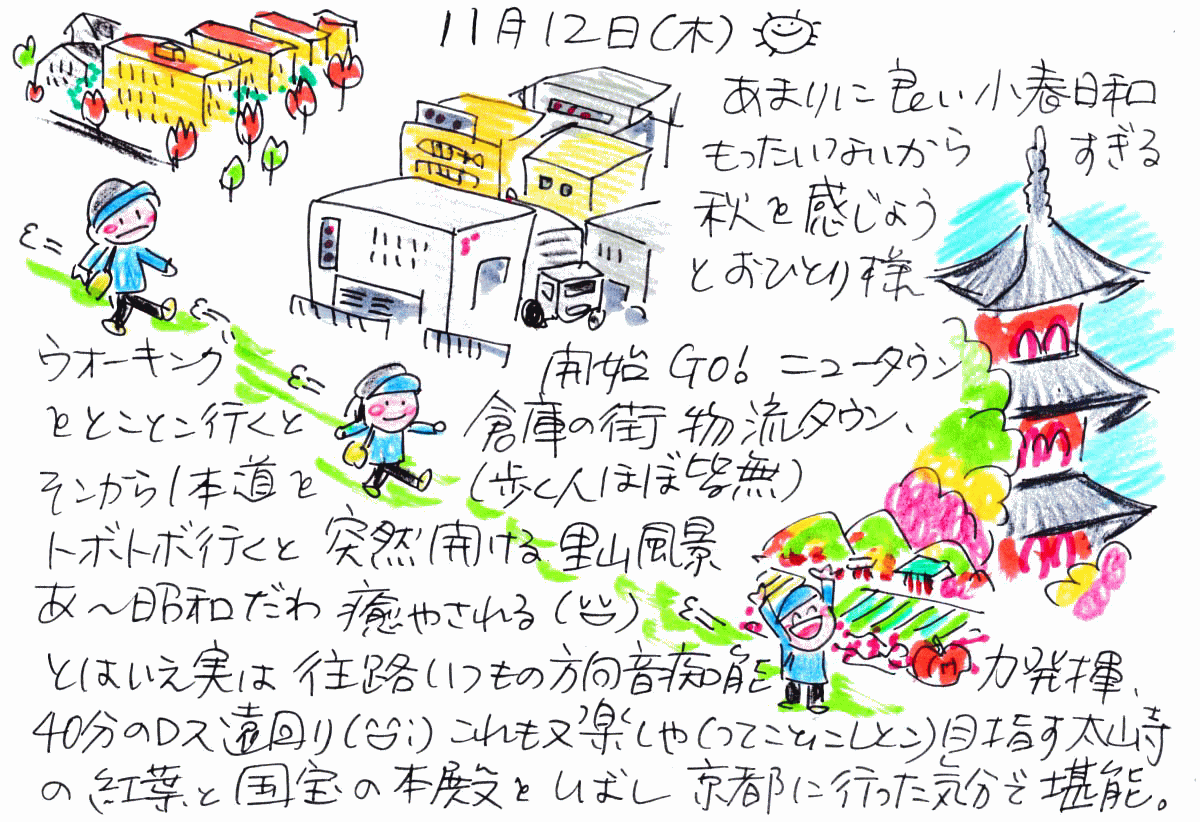 11月12日(木)
あまりに良い小春日和
もったいないから すぎる
秋を感じよう
とおひとり様
ウオーキング 開始 GO! ニュータウン
をとことこ行くと 倉庫の街 物流タウン、
そこから1本道を (歩く人ほぼ皆無)
トボトボ行くと 突然開ける里山風景
あ〜昭和だわ 癒やされる
とはいえ実は 往路いつもの方向音痴能 力発揮、
40分のロス遠回り これも又楽しや(ってことにしとこ)目指す太山寺
の紅葉と国宝の本殿をしばし 京都に行った気分で堪能。